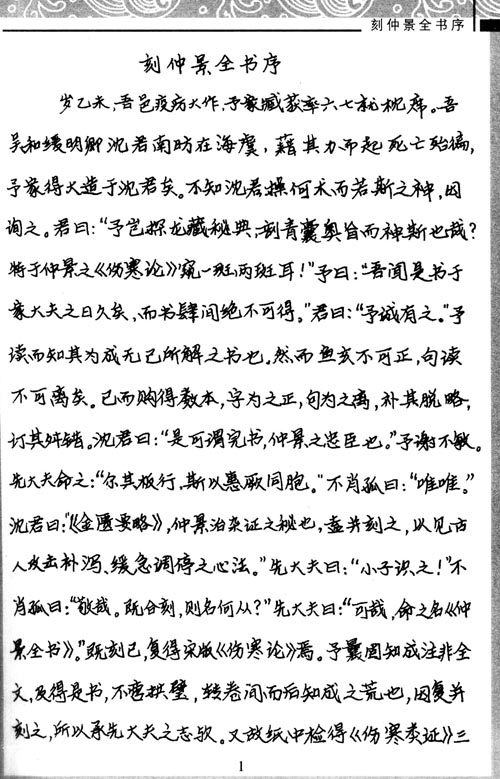 刻仲景全书序
刻仲景全书序
岁乙未,吾邑疫疠大作,予家臧获率六七就枕席。吾
吴和缓明卿沈君南昉在海虞,藉其力而起死亡殆徧,
予家得大造于沈君矣。不知沈君操何术而若斯之神,因
询之。君曰:“予岂探龙藏秘典,剖青囊奥旨而神斯也哉?
特于仲景之《伤寒论》窥一斑两斑耳!”予曰:“吾闻是书于
家大夫之日久矣,而书肆间绝不可得。”君曰:“予诚有之。”予
读而知其为成无己所解之书也。然而鱼亥不可正,句读
不可离矣。已而购得数本,字为之正,句为之离,补其脱略,
订其舛错。沈君曰:“是可谓完书,仲景之忠臣也。”予谢不敏。
先大夫命之:“尔其板行,斯以惠厥同胞。”不肖孤曰:“唯唯。”
沈君曰:“《金匮要略》,仲景治杂证之秘也,盍并刻之,以见古
人攻击补泻、缓急调停之心法。”先大夫曰:“小子识之!”不
肖孤曰:“敬哉。既合刻,则名何从?”先大夫曰:“可哉,命之名《仲
景全书》。”既刻已,复得宋版《伤寒论》焉。予曩固知成注非全
文,及得是书,不啻拱璧,转卷间而后知成之荒也,因复并
刻之,所以承先大夫之志欤。又故纸中检得《伤寒类证》三
1